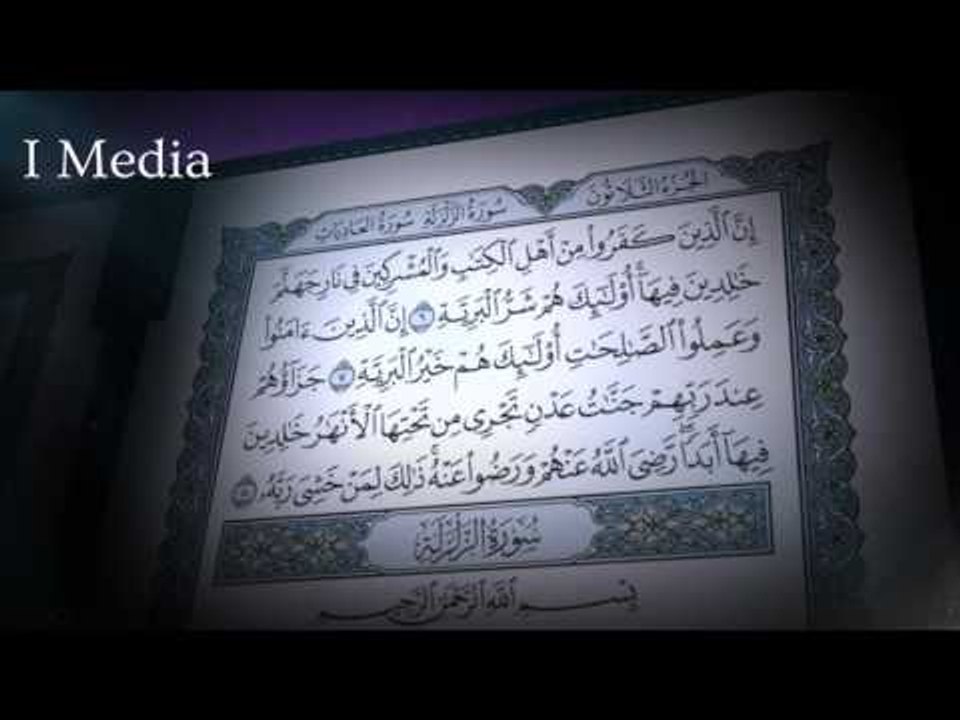 I Media
الجزء الثلاثون
سورة الزلزلة سورة العاديات
إِنَّ ٱلَّذِينَ كَفَرُوا۟ مِنْ أَهْلِ ٱلْكِتَٰبِ وَٱلْمُشْرِكِينَ فِى نَارِ جَهَنَّمَ
خَٰلِدِينَ فِيهَآ ۚ أُو۟لَٰٓئِكَ هُمْ شَرُّ ٱلْبَرِيَّةِ ٦ إِنَّ ٱلَّذِينَ ءَامَنُوا۟
وَعَمِلُوا۟ ٱلصَّٰلِحَٰتِ أُو۟لَٰٓئِكَ هُمْ خَيْرُ ٱلْبَرِيَّةِ ٧ جَزَآؤُهُمْ
عِندَ رَبِّهِمْ جَنَّٰتُ عَدْنٍ تَجْرِى مِن تَحْتِهَا ٱلْأَنْهَٰرُ خَٰلِدِينَ
فِيهَآ أَبَدًا ۖ رَّضِىَ ٱللَّهُ عَنْهُمْ وَرَضُوا۟ عَنْهُ ۚ ذَٰلِكَ لِمَنْ خَشِىَ رَبَّهُۥ ٨
سُورَةُ الزَّلْزَلَةِ
بِسْمِ ٱللَّهِ ٱلرَّحْمَٰنِ ٱلرَّحِيمِ